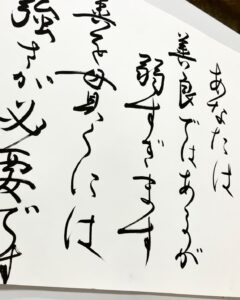 あなたは
善良ではあるが
弱すぎます
善を貫くには
強さが必要です